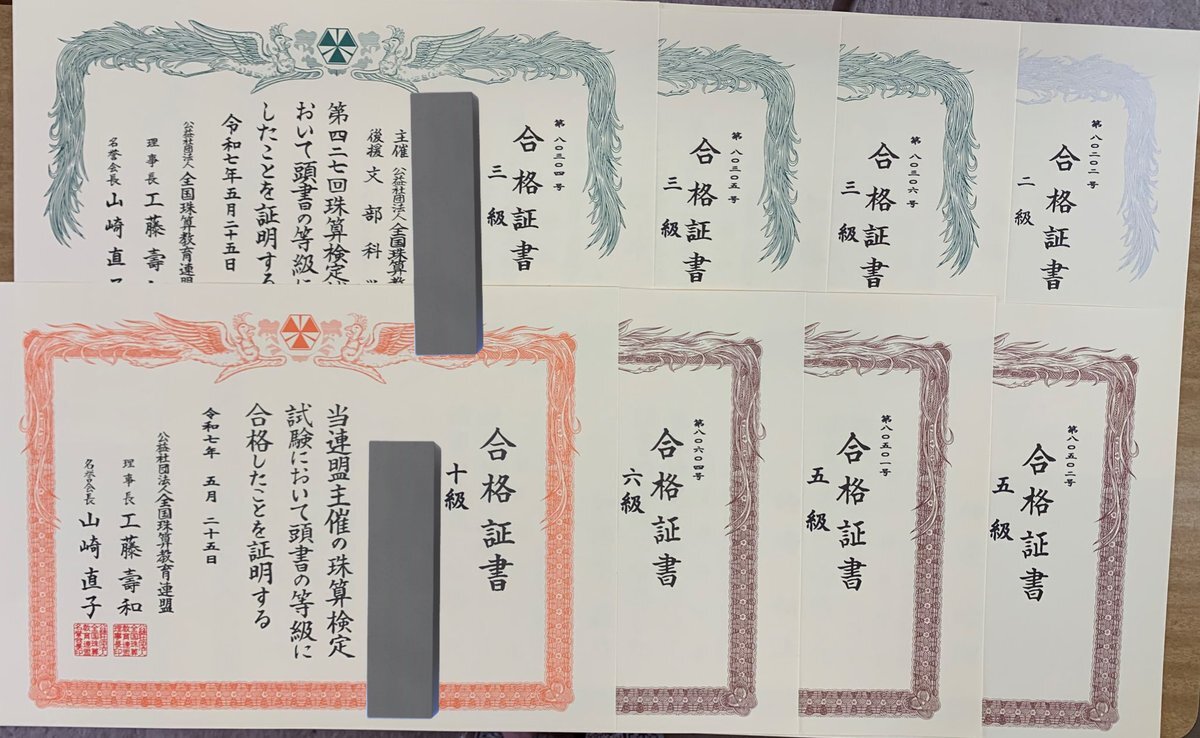 第八〇三〇四号
合格証書
三級
主催 公益社団法人全国珠算教
後援 文部科
第四二七回珠算検定
おいて頭書の等級に
したことを証明する
令和七年五月二十五日
公益社団法人全国珠算教育連盟
理事長 工藤壽
名誉会長 山崎直
第八〇三〇五号
合格証書
三級
第八〇三〇六号
合格証書
三級
第八〇二〇二号
合格証書
二級
合格証書
十級
当連盟主催の珠算検定
試験において頭書の等級に
合格したことを証明する
令和七年 五月 二十五日
公益社団法人全国珠算教育連盟
理事長 工藤壽和
名誉会長 山崎直子
第八〇六〇四号
合格証書
六級
第八〇五〇一号
合格証書
五級
第八〇五〇二号
合格証書
五級